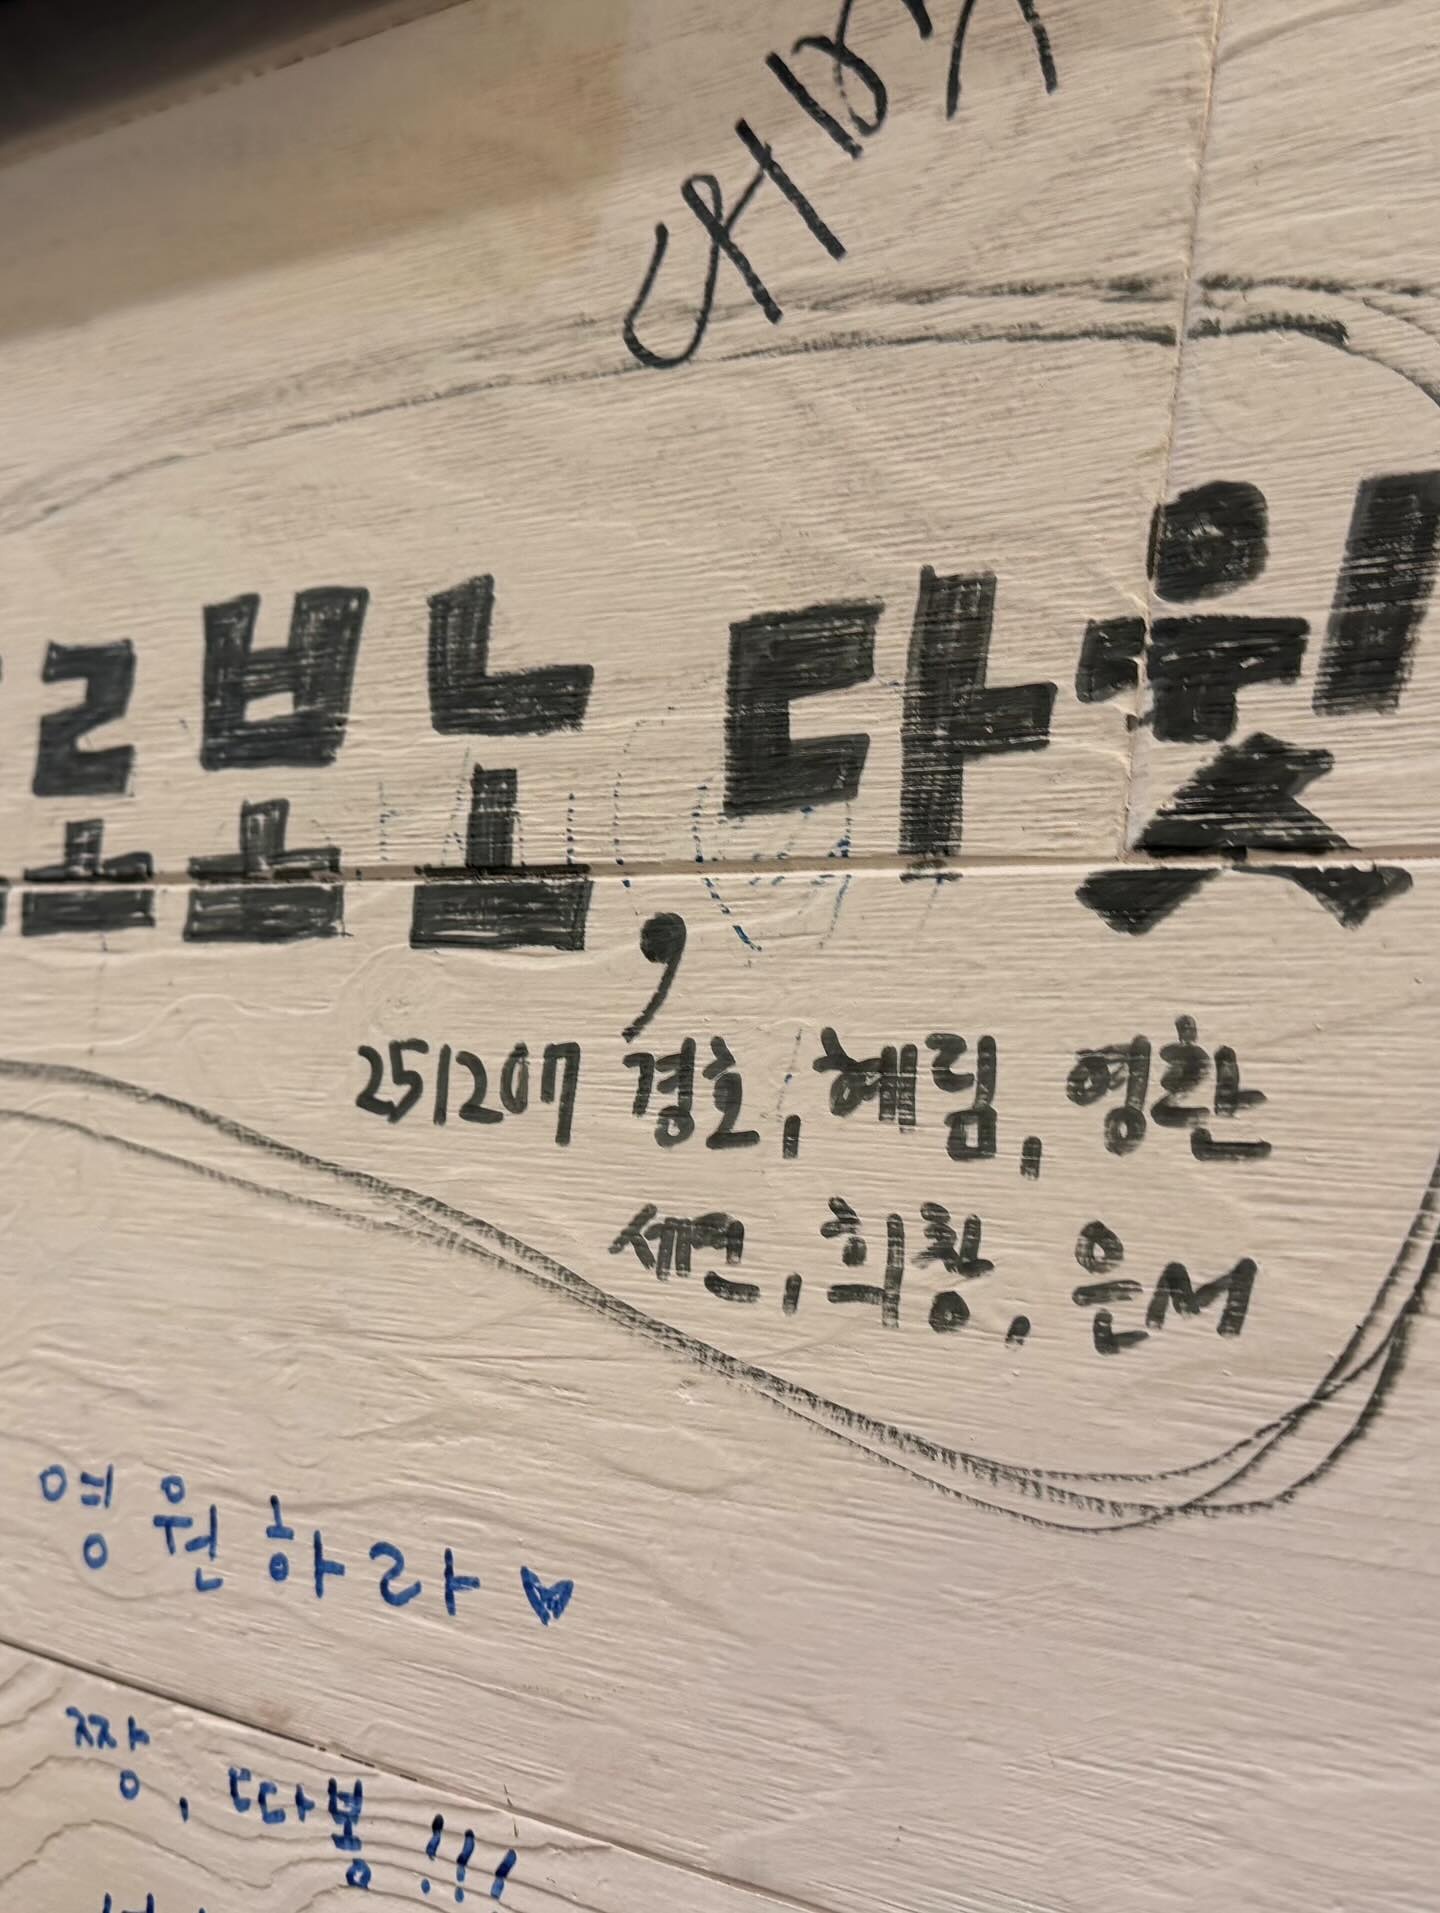 로보노, 다윗
251207 경호, 혜림, 영환
세연, 희창, 은서
영원하라♥
짱, 따봉!!!